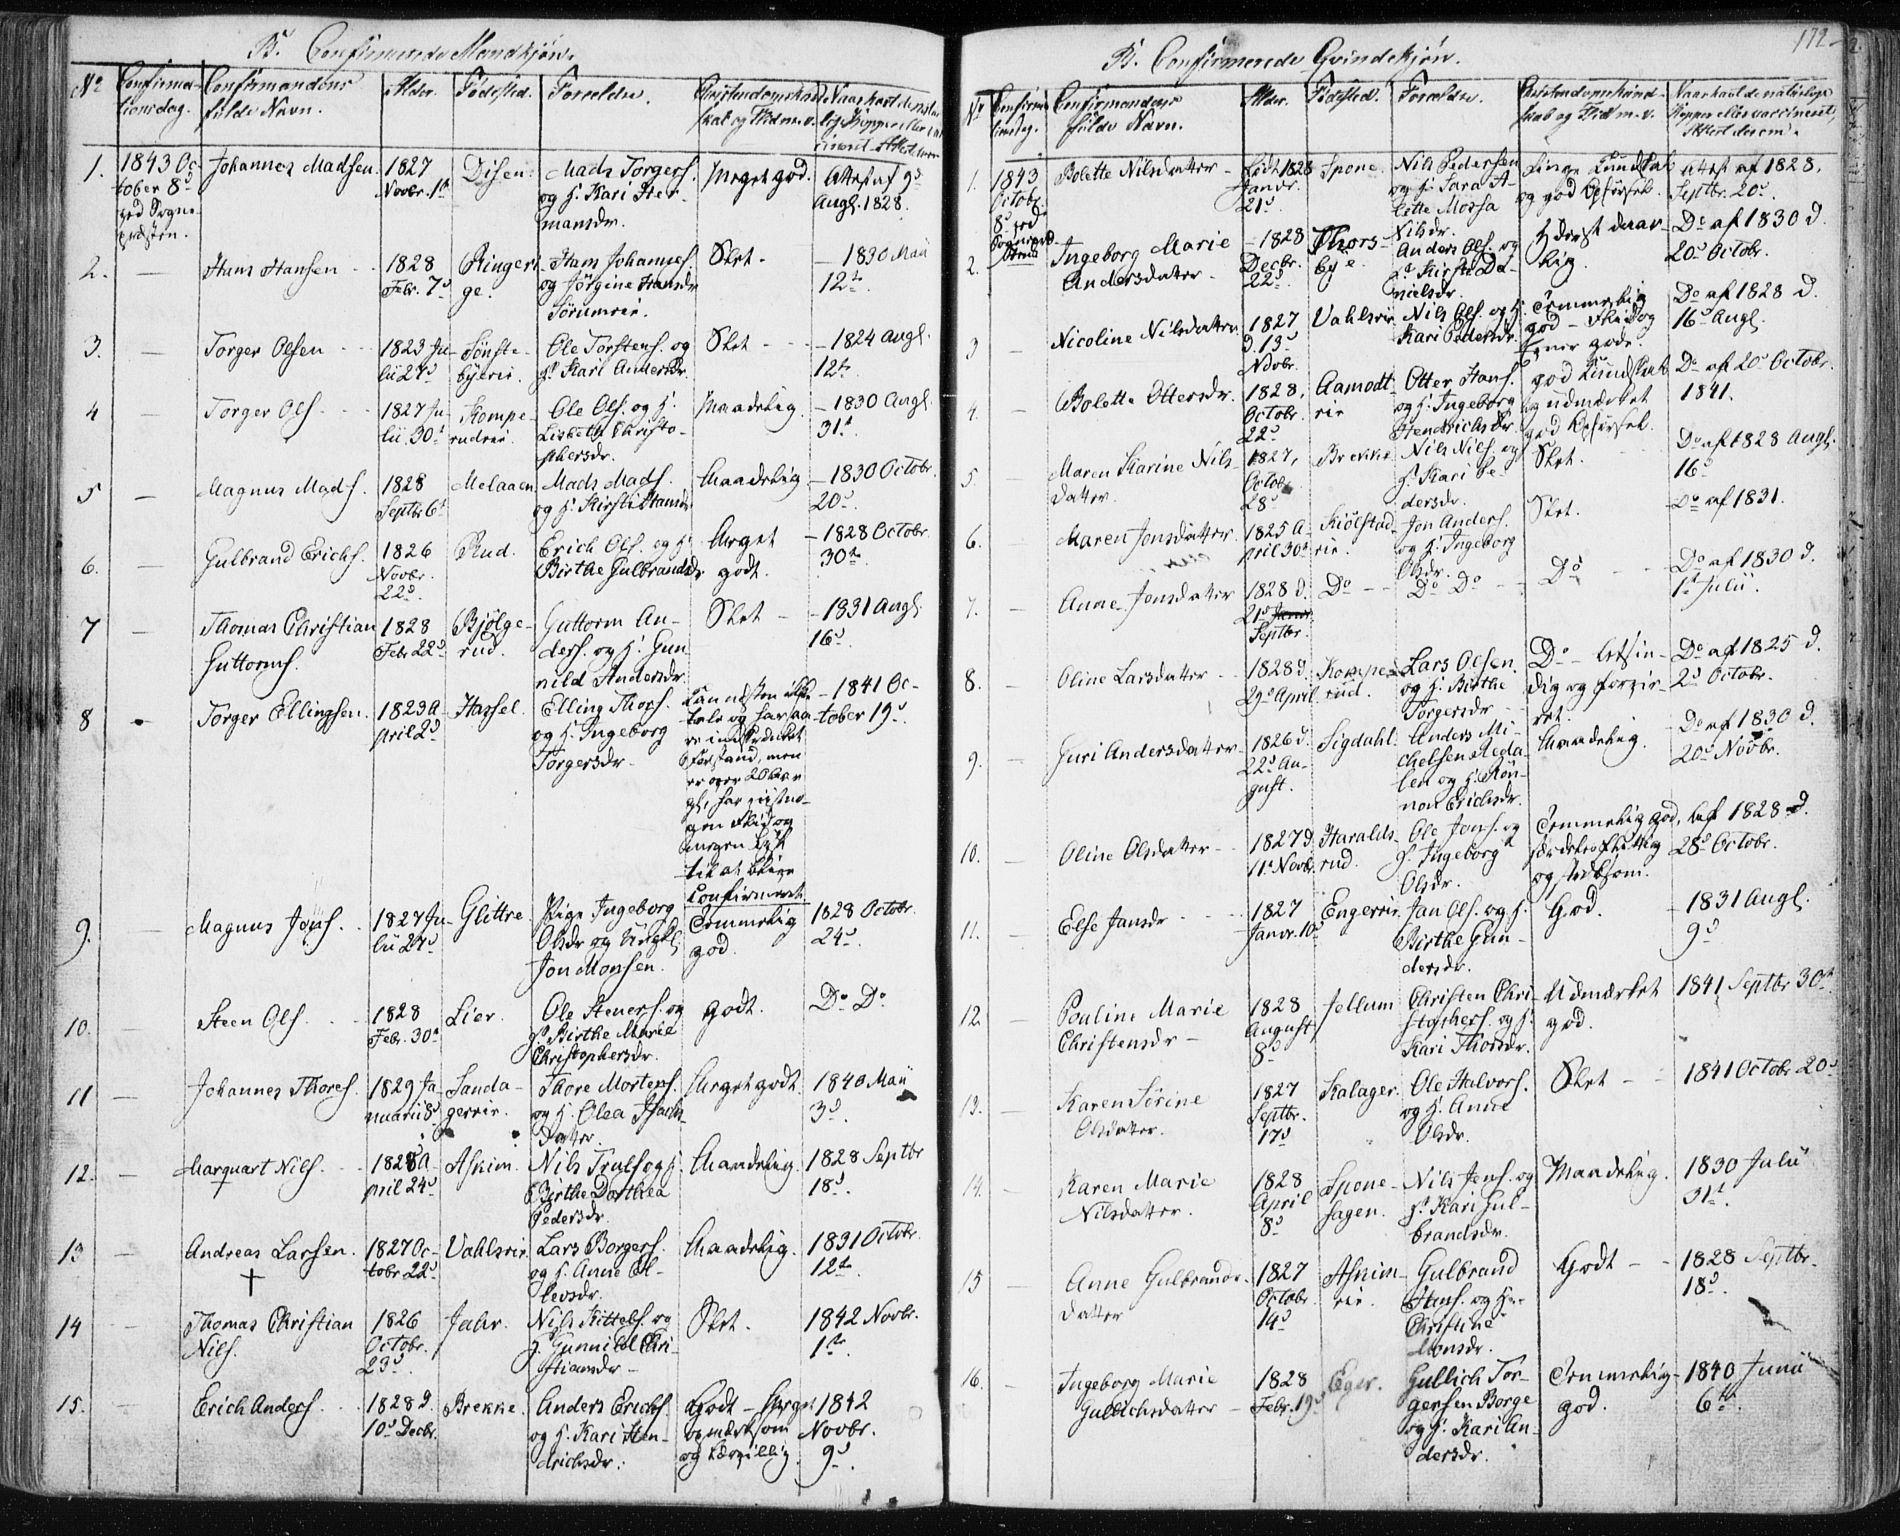 B. Confirmerede Mandkjøn.
No
Confirma-
tionsdag.
Confirmandens
fulde Navn.
Alder.
Fødested.
Forældre.
1.
1843 Oc-
tober 8d
ved Sogne-
præsten.
Johannes Madsen.
1827
Novbr. 1t
Disen.
Mads Torgers.
og H. Kari Her-
mansdr.
Meget god.
Attest af 9d
Augl. 1828.
2.
Hans Hansen
1828
Febr. 7d
Ringeri-
ge.
Hans Johannes.
og Jörgine Hansdr
Sörumeie.
Slet.
1830 Maii
12te
3.
Torger Olsen
1823 Ju-
lii 27d
Tönste-
byeeie.
Ole Torstens. og
H. Kari Andersdr.
Slet
1824 Augl.
12te
4
Torger Ols.
1827 Ju-
lii 30t
Kompe-
rudeie.
Ole Ols. og H.
Lisbeth Christo-
phersdr.
Maadelig.
1830 Augl.
31t
5
Magnus Mads.
1828
Septbr 6t
Melaaen
Mads Mads.
og H. Kirsti Hansdr
Maadelig
1830 Octobr.
20d
6.
Gulbrand Erichs.
1826
Novbr.
22d
Rud.
Erich Ols. og H.
Birthe Gulbrandsdr
Meget
godt.
1828 Octobr
30te
7
Thomas Christian
Guttorms.
1828
Febr 22d
Bjölge-
rud.
Guttorm An-
ders. og H. Gun-
nild Andersdr.
Slet
1831 Augl.
16d
8
Torger Ellingsen.
1823 A-
pril 2d
Hassel.
Elling Thors.
og H. Ingeborg
Torgersdr.
Kan næsten ikke
tale og har saa-
re indskrænket
Forstand, men
er over 20 Aar
gl., har viist no-
gen Flid og
megen Lyst
til at blive
Confirmeret.
1841 Oc-
tober 19d.
9.
Magnus Jons.
1827 Ju-
lii 27d
Glittre
Pige Ingeborg
Olsdr og Ungkl.
Jon Monsen.
Temmelig
god.
1828 Octobr.
24d.
10.
Steen Ols.
1828
Febr. 30d
Lier.
Ole Steners. og
H. Birthe Marie
Christophersdr.
godt.
Do Do
11
Johannes Thores.
1829 Ja-
nuarii 8d
Landa-
gereie.
Thore Mortens.
og H. Olea Isachs
datter.
Meget godt
1840 Maii
3d.
12.
Marquart Nils.
1828 A-
pril 24d
Askim.
Nils Truls. og H.
Birthe Dorthea
Pedersdr.
Maadelig.
1828 Septbr
18d.
13
Andreas Larsen.
†
1827 Oc-
tobr 22d
Vahlseie
Lars Borgers.
og H. Anne Ol-
levsdr.
Maadelig.
1831 Octobr.
12te
14
Thomas Christian
Nils.
1826
Octobr.
23d
Jahr.
Nils Kittels. og
H. Gunnild Chri-
stiansdr
Slet.
1842 Novbr.
1te
15.
Erich Anders.
1828 d.
10d Decbr.
Brekke.
Anders Erichs.
og H. Kari Hen-
drichsdr.
Godt - Meget
opmærksom
og lærvillig.
1842
Novbr.
9d
B. Confirmerede Qvindekjøn.
172
No
Confirma-
tionsdag.
Confirmandens
fulde Navn.
Alder.
Fødested.
Forældre.
Christendomskund-
skab og Flid m. v.
Vaar havt de naturlige
Kopper eller vaccineret,
Attest derom.
1.
1843
Octobr.
8d ved
Bolette Nilsdatter
Födt 1828
Janvr.
21d
Spone.
Nils Pedersen
Nilsdr.
og god Opförsel.
Attest af 1828,
Septbr. 20d.
2.
Ingeborg Marie
Andersdatter
1828
Decbr.
22d
Thors-
bye.
Anders Ols. og
H. Kirsti Da-
nielsdr
Do af 1830 d.
20d Octobr.
3
Nicoline Nilsdatter
1827
d. 13d
Novbr.
Vahlseie
Nils Ols. og H.
Kari Pedersdr.
Temmelig
god - Flid og
Evner gode.
Do af 1828 d.
16d Augl.
4.
Bolette Ottersdr.
1828,
Octobr.
22d
Aamodt-
eie
Otter Hans.
og H. Ingeborg
Hendrichsdr.
god Kundskab
og udmærket
god Opförsel.
Do af 20d Octobr.
1841.
5
Maren Karine Nils-
datter.
1827,
Octobr.
28d
Brekke
Nils Nils. og
H. Kari Pe-
dersdr.
Slet.
Do af 1828 Augl.
16d
6.
Maren Jonsdatter
1825 A-
pril 30t
Kiölstad-
eie.
Jon Anders.
og H. Ingeborg
Olsdr.
Slet.
Do af 1831.
7.
Anne Jonsdatter
1828 d.
21d Janvr
Septbr.
Do
Do Do
Do
Do af 1830 d.
1t Julii.
8.
Oline Larsdatter
1828 d.
29d April
Kompe-
rud.
Lars Olsen
og H. Birthe
Torgersdr
Do
Do af 1825 d.
2d Octobr.
9.
Guri Andersdatter
1826 d.
22d Au-
gust.
Sigdahl.
Anders Mi-
chelsen Aeda-
len og H. Rön-
nou Erichsdr.
Maadelig.
Do af 1830 d.
20d Novbr.
10.
Oline Olsdatter
1827 d.
11t Novbr
Haralds-
rud.
Ole Jons. og
H. Ingeborg
Olsdr.
Temmelig god,
og sædsom.
af 1828 d.
28d Octobr.
11.
Else Jansdr
1827
Janvr. 10d
Engereie.
Jan Ols. og H.
Birthe Gun-
dersdr.
God.
1831 Augl.
9d
12.
Pouline Marie
Christensdr
1828
August
8d
Jellum
Christen Chri-
stophers. og H.
Kari Thorsdr.
Udmærket
god.
1841 Septbr 30te
13.
Karen Sörine
Olsdatter.
1827
Septbr.
17d
Kalager.
Ole Halvors.
og H. Anne
Olsdr.
Slet
1841 Octobr 20d
14.
Karen Marie
Nilsdatter.
1828
April
8d
Spone-
hagen.
Nils Jens. og
H. Kari Gul-
brandsdr.
Maadelig.
1830 Julii
31t.
15
Anne Gulbrands-
datter
1827
Octobr.
14d
Askim-
eie.
Gulbrand
Hans. og H.
Christine
Monsdr.
Godt
1828 Septbr.
18d.
16.
Ingeborg Marie
Gullichsdatter
1828
Febr. 19d
Eger.
Gullich Tor-
gersen Borge
og H. Kari An-
dersdr.
Temmelig
god.
1840 Junii
6te.